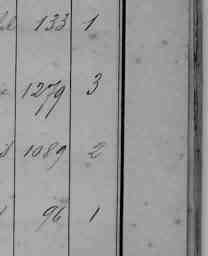 133 1
1279 3
1089 2
96 1